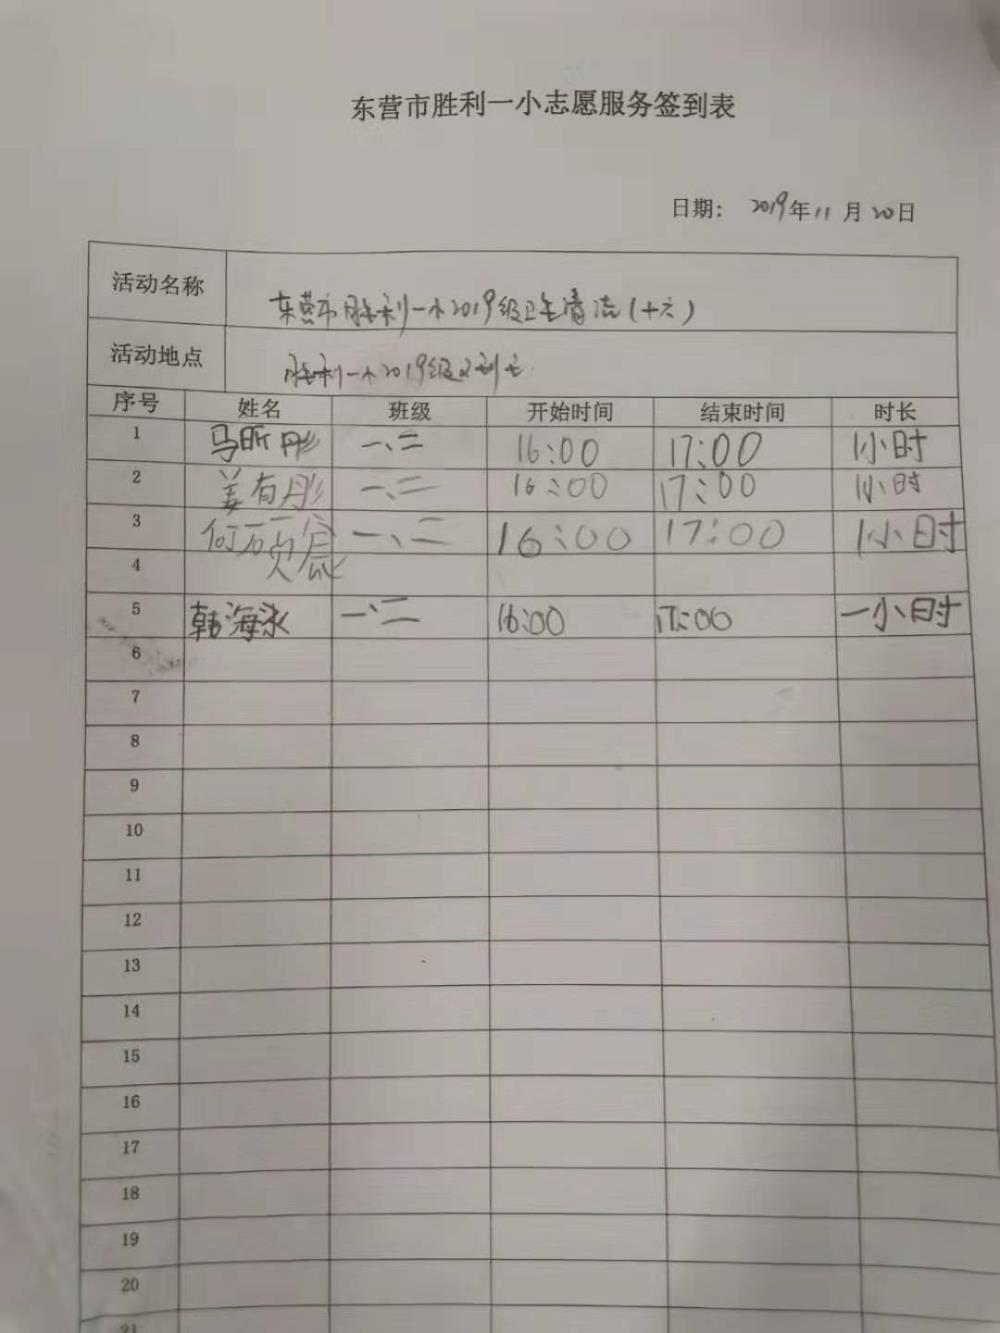 东营市胜利一小志愿服务签到表
日期： 2019年11月20日
活动名称 东营市胜利一小2019级卫生清洁(十六)
活动地点 胜利一小2019级
序号 姓名 班级 开始时间 结束时间 时长
1 马昕彤 一、二 16:00 17:00 1小时
2 姜有彤 一、二 16:00 17:00 1小时
3 何 一、二 16:00 17:00 1小时
4
5 韩海泳 一、二 16:00 17:00 一小时
6
7
8
9
10
11
12
13
14
15
16
17
18
19
20
21